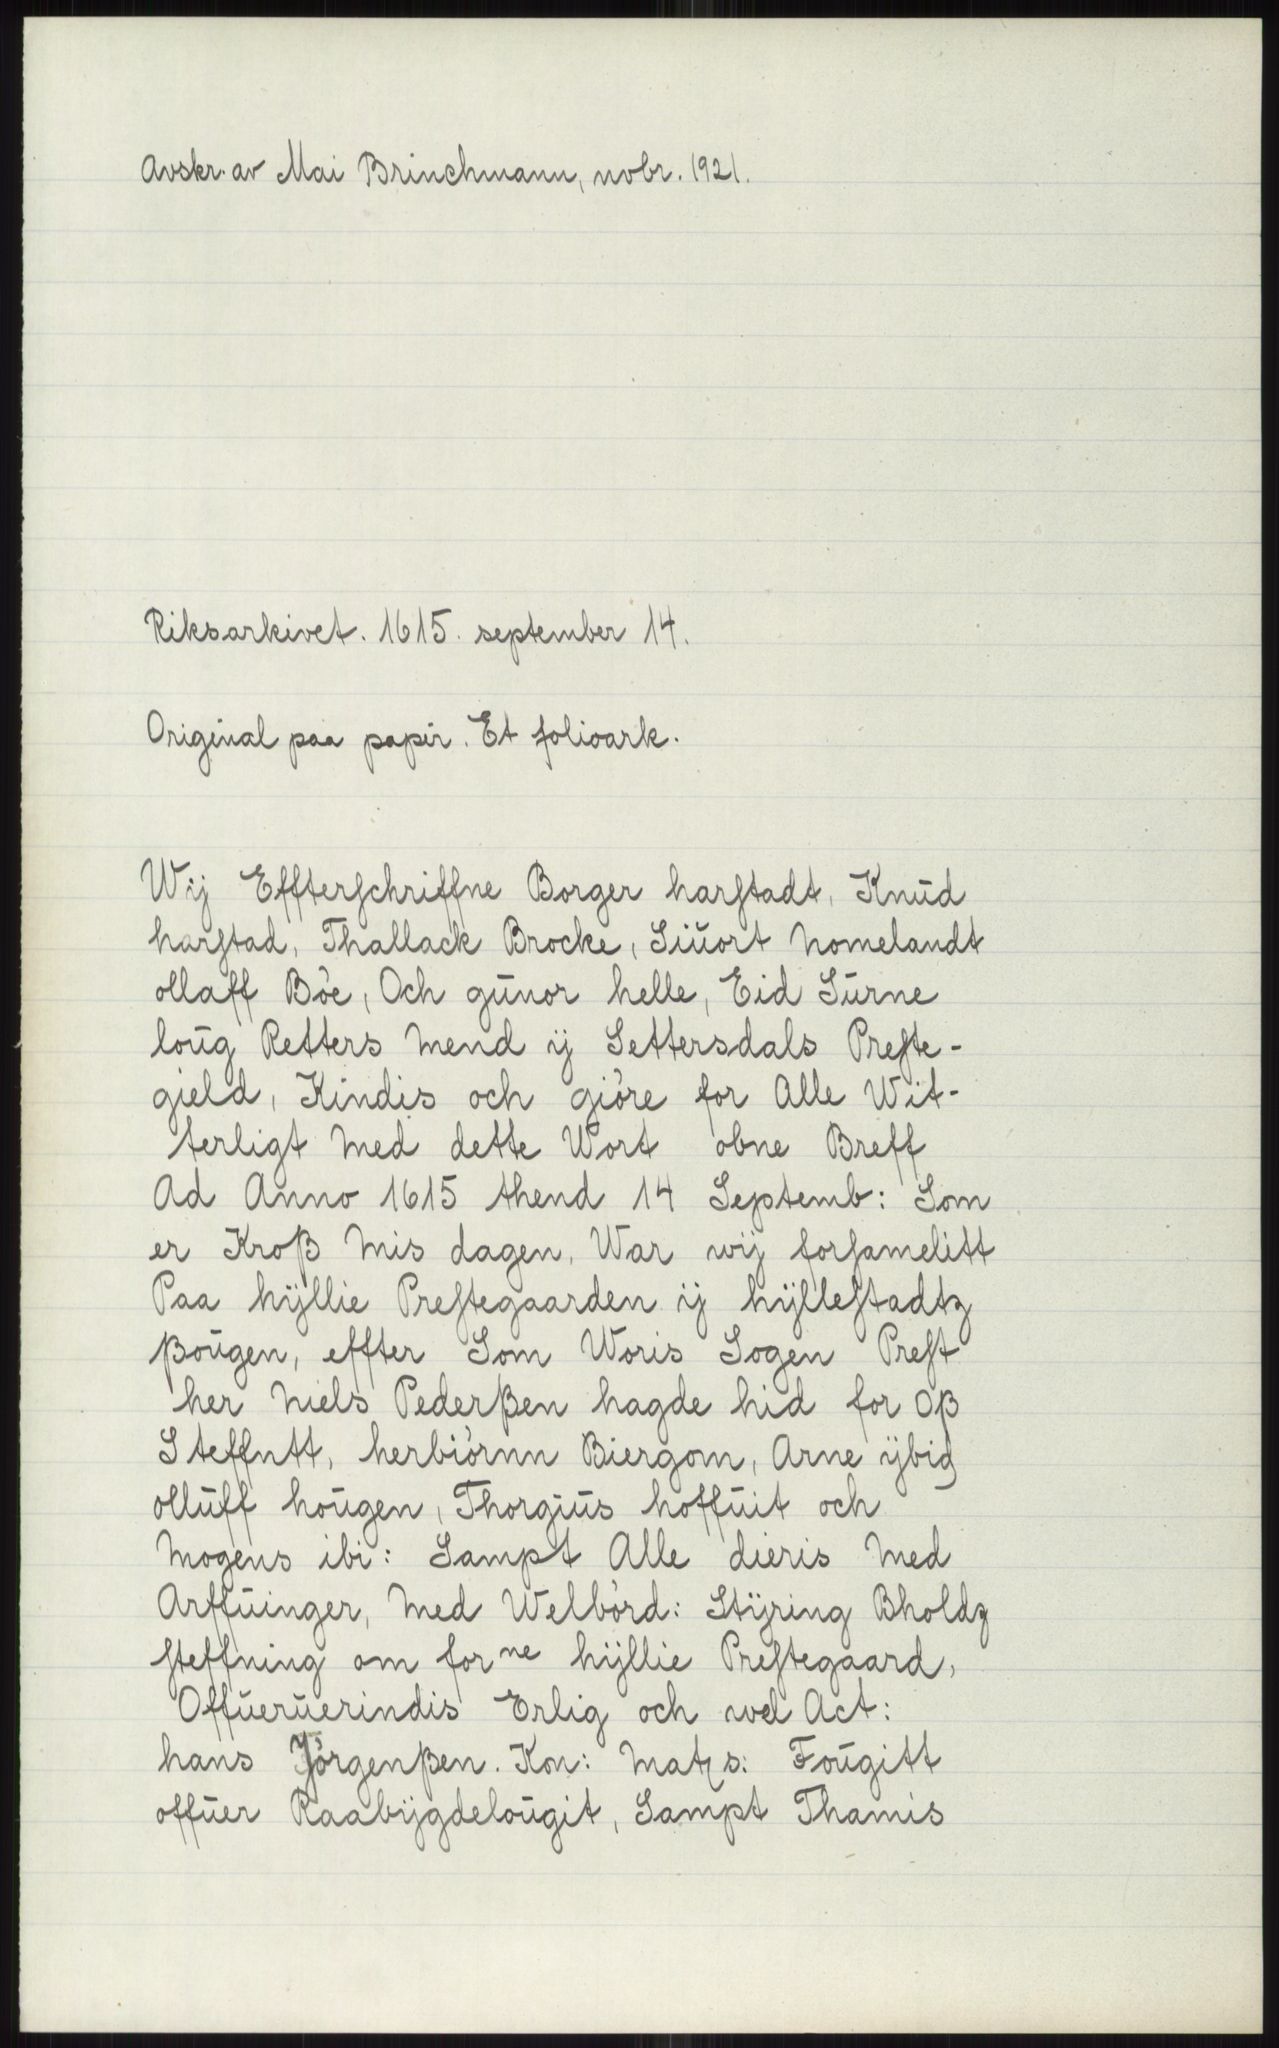 Avskr. av Mai Brinchmann, novbr. 1921.
Riksarkivet. 1615. september 14.
Original paa papir. Et folioark.
Wij Effterschriffne Borger harstadt, Knŭd
harstad, Thallack Brocke, Siŭort Nomelandt
ollaff Böe, Och gŭnor helle, Eid Sŭrne
loŭg Retters Mend ij Settersdals Preste-
gield, Kindis och giöre for Alle Wit-
terligt Med dette Wort obne Breff
Ad Anno 1615 thend 14 Septemb: Som
er Kroß Mis dagen, War wij forsamelitt
Paa hÿllie Prestegaarden ij hÿllestadtz
ßoŭgen, effter Som Woris Sogen Prest
her Niels Pederßen hagde hid for oß
Steffntt, herbiörnn Biergom, Arne ÿbid
ollŭff hoŭgen, Thorgiŭs hoffŭit och
Mogens ibi: Sampt Alle dieris Med
Arffŭinger, Med Welbörd: Stÿring Bholdz
steffning om forne hÿllie Prestegaard,
Offŭerŭerindis Erlig och wel Act:
hans Jörgenßen. Kon: Matz s: Foŭgitt
offŭer Raabÿgdeloŭgit, Sampt Thamis